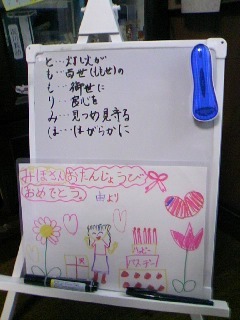 と…灯し火が
も…百世(ももせ)の
も…御世に
り…宮心を
み…見つめ見守る
ほ…ほがらかに
みほさんおたんじょうび
おめでとう。
より
ハッピー
バースデー